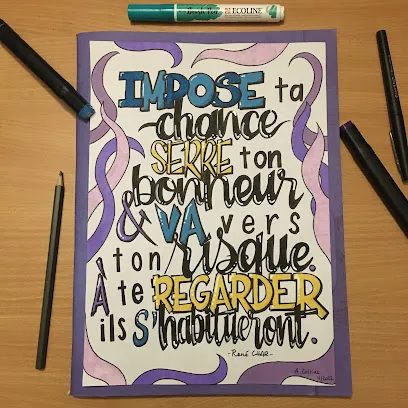 Brush Pen ECOLINE
IMPOSE ta
chance
SERRE ton
bonheur
& VA vers
ton risque.
À te REGARDER
ils S'habitueront.
-René CHAR-